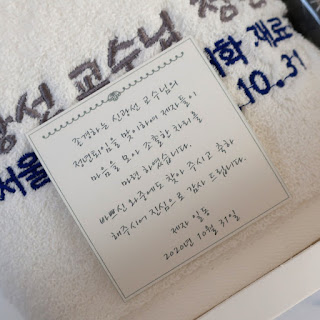 광선 교수님 정년
존경하는 신광선 교수님의
정년퇴임을 맞이하여 제자들이
마음을 모아 조촐한 자리를
마련 하였습니다.
바쁘신 와중에도 찾아 주시고 축하
해주시어 진심으로 감사 드립니다.
제자 일동
2020년 10월 31일
서울
학 재료
10.31